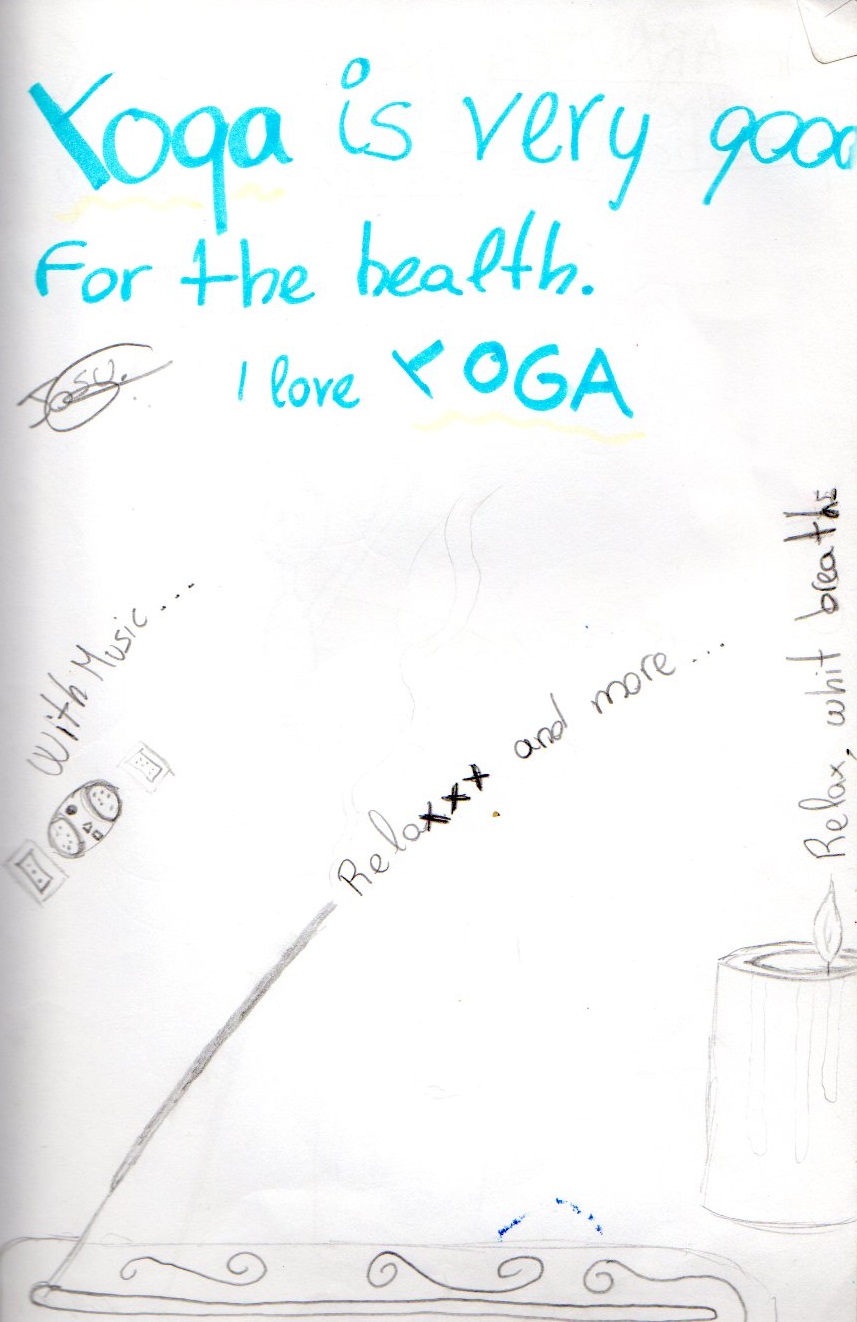 Yoga is very good
For the health.
Josu.
I love YOGA
With Music....
Relaxxx and more...
Relax, whit breaths